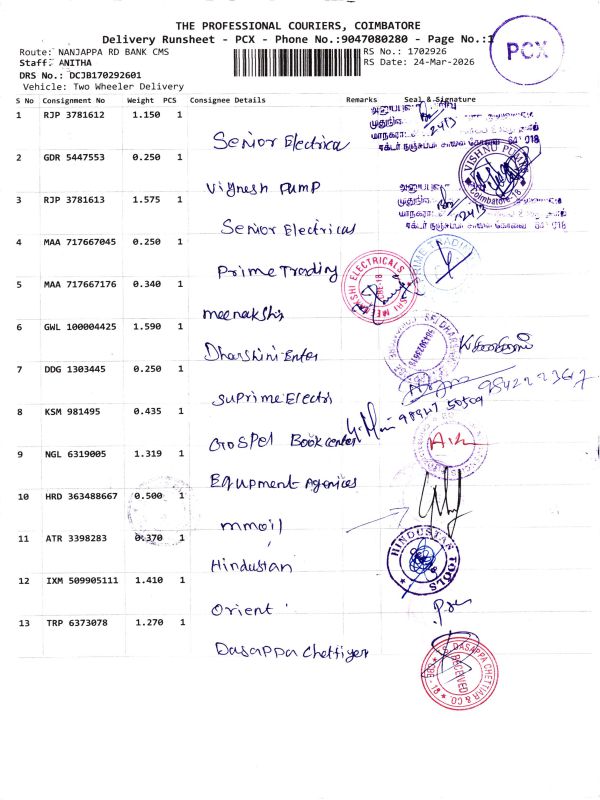 THE PROFESSIONAL COURIERS, COIMBATORE
Delivery Runsheet - PCX - Phone No.:9047080280 - Page No.:1
PCX
Route: NANJAPPA RD BANK CMS
RS No.: 1702926
Staff: ANITHA
RS Date: 24-Mar-2026
DRS No.: DCJB170292601
Vehicle: Two Wheeler Delivery
S No Consignment No Weight PCS Consignee Details Remarks Seal & Signature
1 RJP 3781612 1.150 1
Senior Electrica
641018
2 GDR 5447553 0.250 1
Vignesh Pump
VISHNU PUMPS
Coimbatore-18
3 RJP 3781613 1.575 1
Senior Electricas
641018
4 MAA 717667045 0.250 1
Prime Trading
PRIME TRADING
5 MAA 717667176 0.340 1
meenakshi
SHI ELECTRICALS
6 GWL 100004425 1.590 1
Dharshini Enter
7 DDG 1303445 0.250 1
Suprime Elects
9842223617
8 KSM 981495 0.435 1
Gospel Book center
98947 50509
9 NGL 6319005 1.319 1
Equpment Agencies
10 HRD 363488667 0.500 1
mmoil
11 ATR 3398283 0.370 1
Hindustan
HINDUSTAN TOOLS
12 IXM 509905111 1.410 1
Orient
13 TRP 6373078 1.270 1
Dasappa Chettiyer
S. DASAPPA CHETTIAR & CO.
RECEIVED
CBE-18